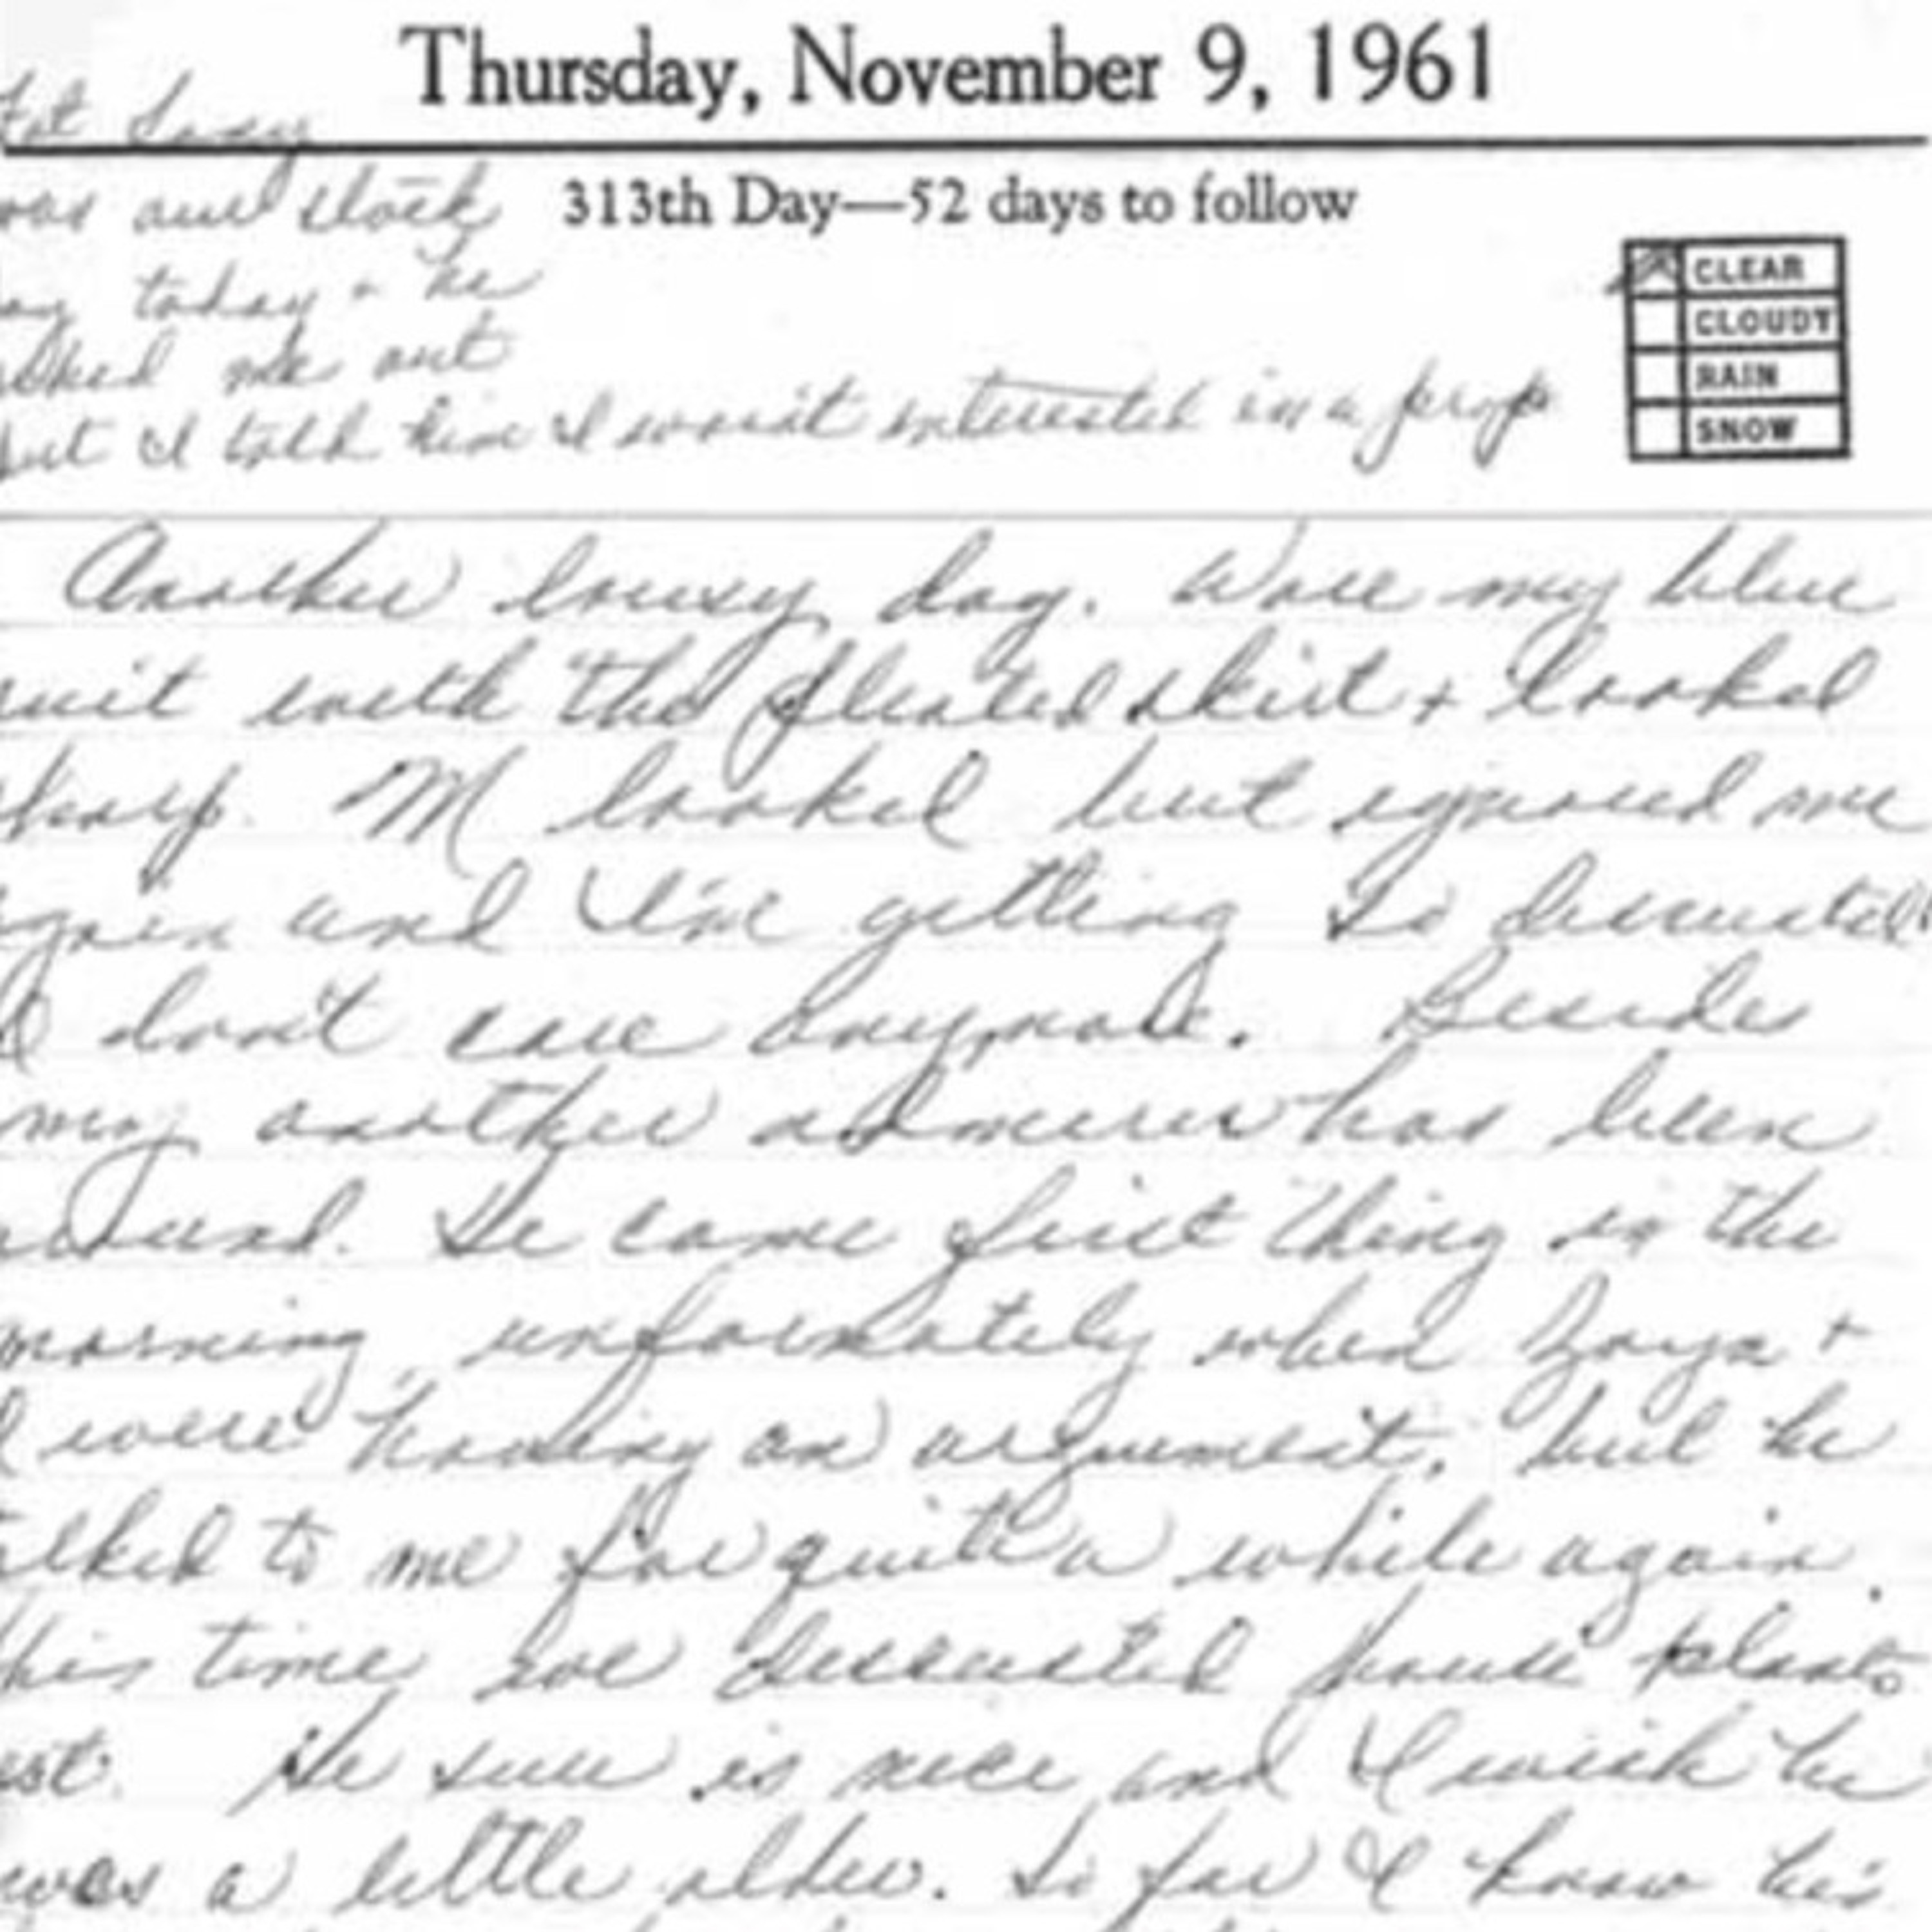 Thursday, November 9, 1961
Fat Savy
was our stock
boy today + he
asked me out
but I told him I wasn't interested in a perop
313th Day—52 days to follow
CLEAR
CLOUDY
RAIN
SNOW
Another lousy day. Wore my blue
suit with the pleated skirt + looked
sharp. M looked but ignored me
again and I'm getting so discusted
I don't care anymore. Besides
my another admirer has been
around. He came first thing in the
morning, unfornately when Zoya +
I were having an argument, but he
talked to me for quite a while again.
This time we discusted house plants
. He sure is nice and I wish he
was a little older. So far I know he's